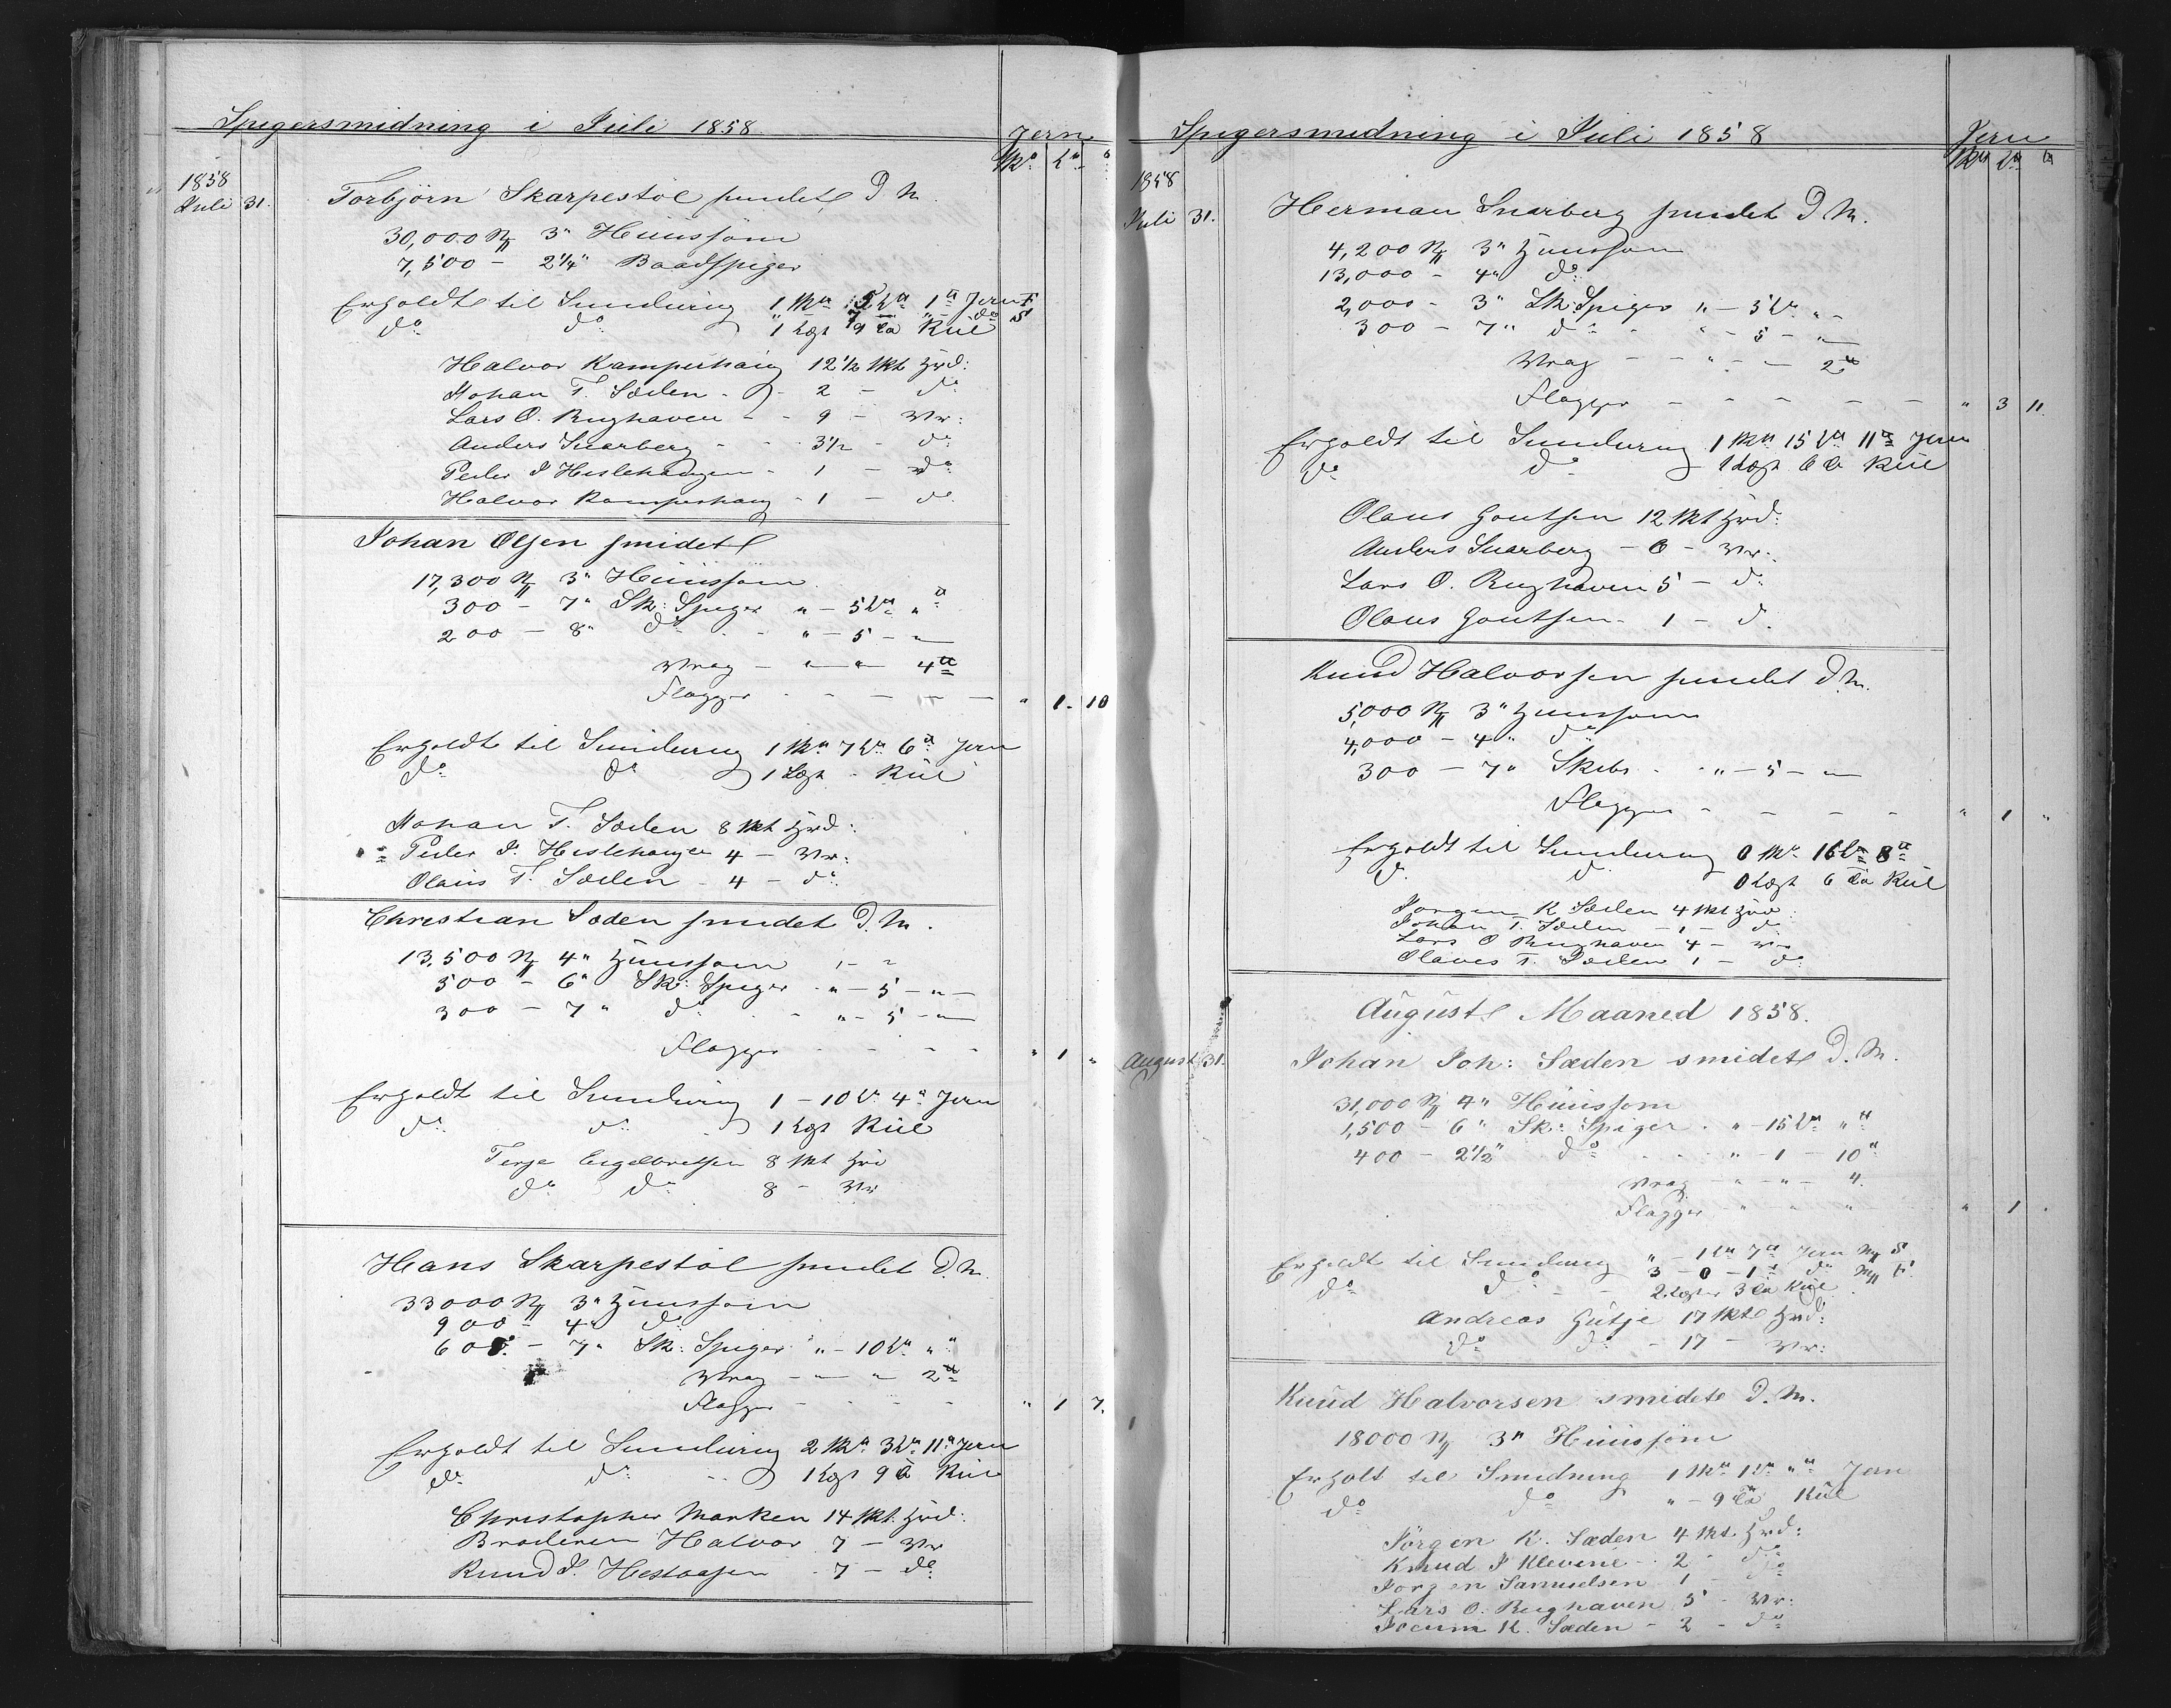 Spigersmidning i Juli 1858
Jern
Sk℔ L℔ ℔
1858
Juli 31.
Torbjörn Skarpestöl smidet D. M.
30,000 N 3" Huussöm
7,500 – 2 1/4" Baadspiger
Erholdt til Smidning 1 Sk℔ 5 L℔ 1 ℔ Jern F
do do 1 Lægt 9 Kul
Halvor Kamperhaug 12 1/2 Skt Hvd:
Johan T. Sæden - 2 – do
Lars O. Rughaven - - 9 – Vr:
Anders Snarberg - - 3 1/2 - do
Peder J Heslehaugen - 1 – do
Halvor Kamperhaug - 1 – do
Johan Olsen smidet
17,300 N 3" Huussöm
300 – 7" Sk: Spiger " – 5 L℔ " ℔
200 – 8" do - - " – 5 – "
Vrag – " – " 4 ℔
Flagger - - – – – " 1. 10
Erholdt til Smidning 1 Sk℔ 7 L℔ 6 ℔ Jern
do do 1 Lægt - Kul
Johan T. Sæden 8 Skt Hvd:
Peder J. Heslehaugen 4 – Vr:
Olaus T. Sæden - 4 – do
Christian Sæden smidet D. M.
13,500 N 4" Huussom
500 – 6" Sk: Spiger - " – 5 – " –
300 – 7" do - - " – 5 – "
Flagger - - - - " 1 "
Erholdt til Smidning 1 – 10 L℔ 4 ℔ Jern
do do 1 Lægt Kul
Terje Engelbretsen 8 Skt Hvd
do do 8 – Vr
Hans Skarpestöl smidet D. M.
33000 N 3" Huussom
900 – 4" do
600 – 7" Sk: Spiger " – 10 L℔ "
Vrag – " – " 2 ℔
Flagger - - - - " 1 7.
Erholdt til Smidning 2 Sk℔ 3 L℔ 11 ℔ Jern
do do - - 1 Lægt 9 Kul
Christopher Marken 14 Skt. Hvd:
Broderen Halvor 7 – Vr
Knud J. Hestaasen - 7 – do
Spigersmidning i Juli 1858
Jern
Sk℔ L℔ ℔
1858
Juli 31.
Herman Snarberg smidet D. M.
4,200 N 3" Huussom
13,000 – 4" do
2,000 – 3" Sk: Spiger " – 3 L℔ " –
300 – 7" do - " – 5 – "
Vrag – – " – – 2 ℔
Flagger – - - – – " 3 11.
Erholdt til Smidning 1 Sk℔ 15 L℔ 11 ℔ Jern
do do - 1 Lægt 6 Kul
Olaus Goutsen 12 Skt Hvd:
Anders Snarberg – 6 – Vr.
Lars O. Rughaven 5 – do
Olaus Goutsen - 1 – d.
Knud Halvorsen smidet D. M.
5,000 N 3" Huussom
4,000 – 4" do
300 – 7" Skibs - - " – 5 – "
Flagger - - - - - " 1 "
Erholdt til Smidning 0 Sk℔ 16 L℔ 8 ℔
d. d. 0 Lægt 6 Kul
Jørgen K Sæden 4 Skt Hvd
Johan T. Sæden – 1 – do
Lars O Rughaven 4 – Vr
Olaves T. Sæden 1 – do
August Maaned 1858.
August 31.
Johan Joh: Sæden smidet D. M.
31,000 N 4" Huussom
1,500 – 6" Sk: Spiger - " – 15 L℔ " ℔
400 – 2 1/2" do - - - " – 1 – 10 "
Vrag – " – " – 4.
Flagger - " - " - " - " 1 "
Erholdt til Smidning " – 1 L℔ 7 ℔ Jern N S
3 – 0 – 1 ℔ do N F.
do do - - 2 Lægter 3 Kul
Andreas Gutje 17 Skt Hvd:
do do - 17 – Vr:
Knud Halvorsen smidet D. M.
18000 N 3" Huussöm
Erholt til Smidning 1 Sk℔ 1 L℔ " ℔ Jern
do do " – 9 Kul
Jörgen K. Sæden 4 Skt Hvd:
Knud J Klevene - 2 - do
Jorgen Samuelsen 1 – do
Lars O. Rughaven 5 - Vr:
Jocum K. Sæden – 2 – do